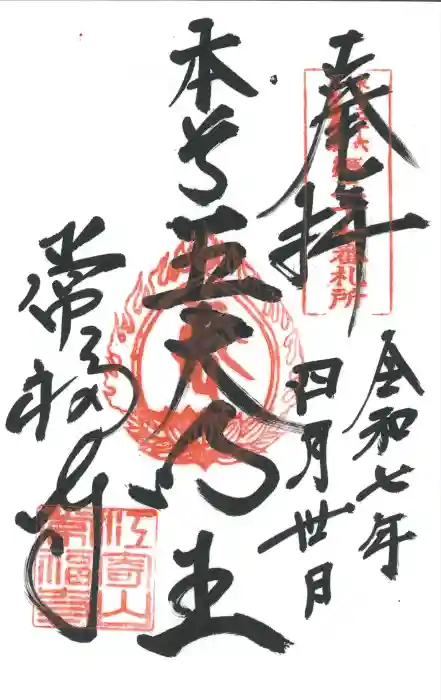 奉拝
番札所
令和七年
四月卅日
本尊
五大明王
常福寺
江寄山
常福寺